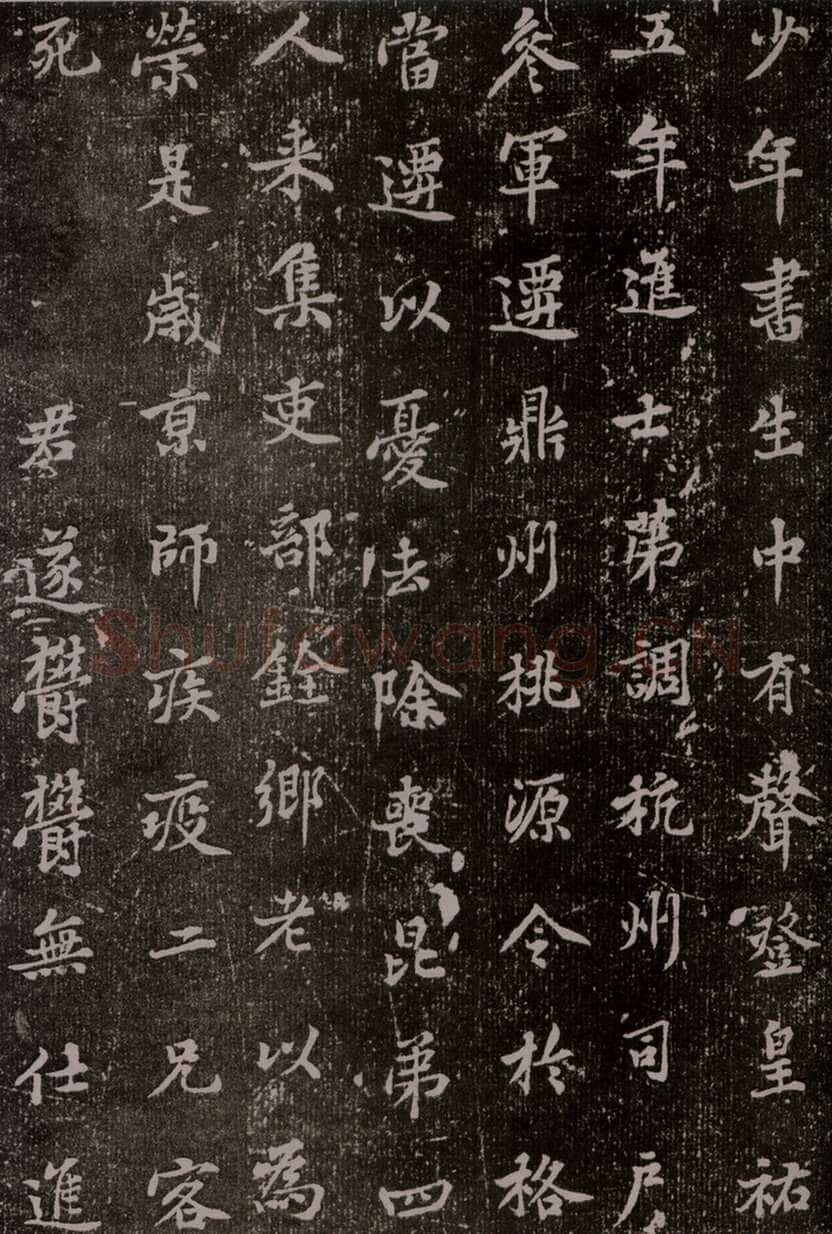 少年書生中有聲登皇祐
五年進士第調杭州司戶
參軍遷鼎州桃源令於格
當遷以憂去除喪昆弟四
人來集吏部銓鄉老以為
榮是歲京師疾疫二兄客
死君遂鬱鬱無仕進
Shufawang.CN